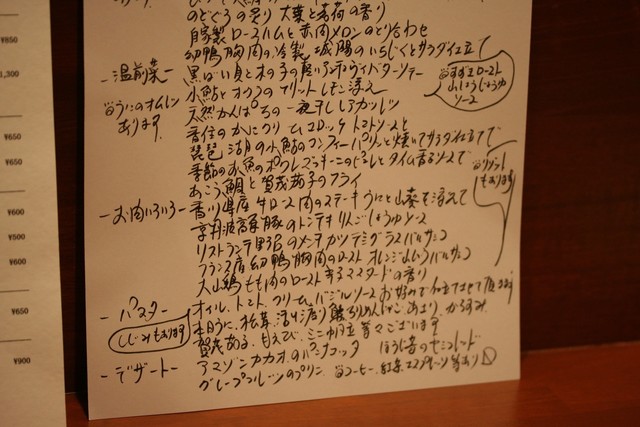 のどぐろの炙り 大葉と茗荷の香り
自家製ロースハムと赤肉メロンのとり合わせ
幼鴨胸肉の冷製 城陽のいちじくとサラダ仕立て
-温前菜-
黒ばい貝と木の子の軽いアンチョビバターソテー
小鮎とオクラのフリット レモン添え
天然かんぱちの一夜干しレアカツレツ
香住のカニクリームコロッケ トマトソースと
琵琶湖の小鮎のコンフィ パリッと焼いてサラダ仕立で
季節のお魚のポワレ ズッキーニのピュレとタイム香るソースで
あこう鯛と賀茂茄子のフライ
うにのオムレツ
あります
すずきロースト
山椒しょうゆ
ソース
リゾット
もあります
-お肉いろいろ-
香川県産 牛ロース肉のステーキ うにと山葵を添えて
京丹波高原豚のトンテキ りんごしょうゆソース
リストランテ野呂のメンチカツ デミグラスバルサミコ
フランス産幼鴨胸肉のロースト オレンジはちみつバルサミコ
大山鶏もも肉のロースト 粒マスタードの香り
-パスタ-
オイル、トマト、クリーム、バジルソース お好みで仕立てさせて頂きます
本日うに、松茸、活け渡り蟹、ちりめんじゃこ、あさり、からすみ
賀茂なす、甘えび、ミニ帆立 等々ございます
しじみもあります
-デザート-
アマゾンカカオのパンナコッタ ほうじ茶のセミフレッド
グレープフルーツのプリン コーヒー、紅茶、エスプレッソ等あり
¥850
1,300
¥650
¥650
¥650
¥600
¥500
¥600
¥900